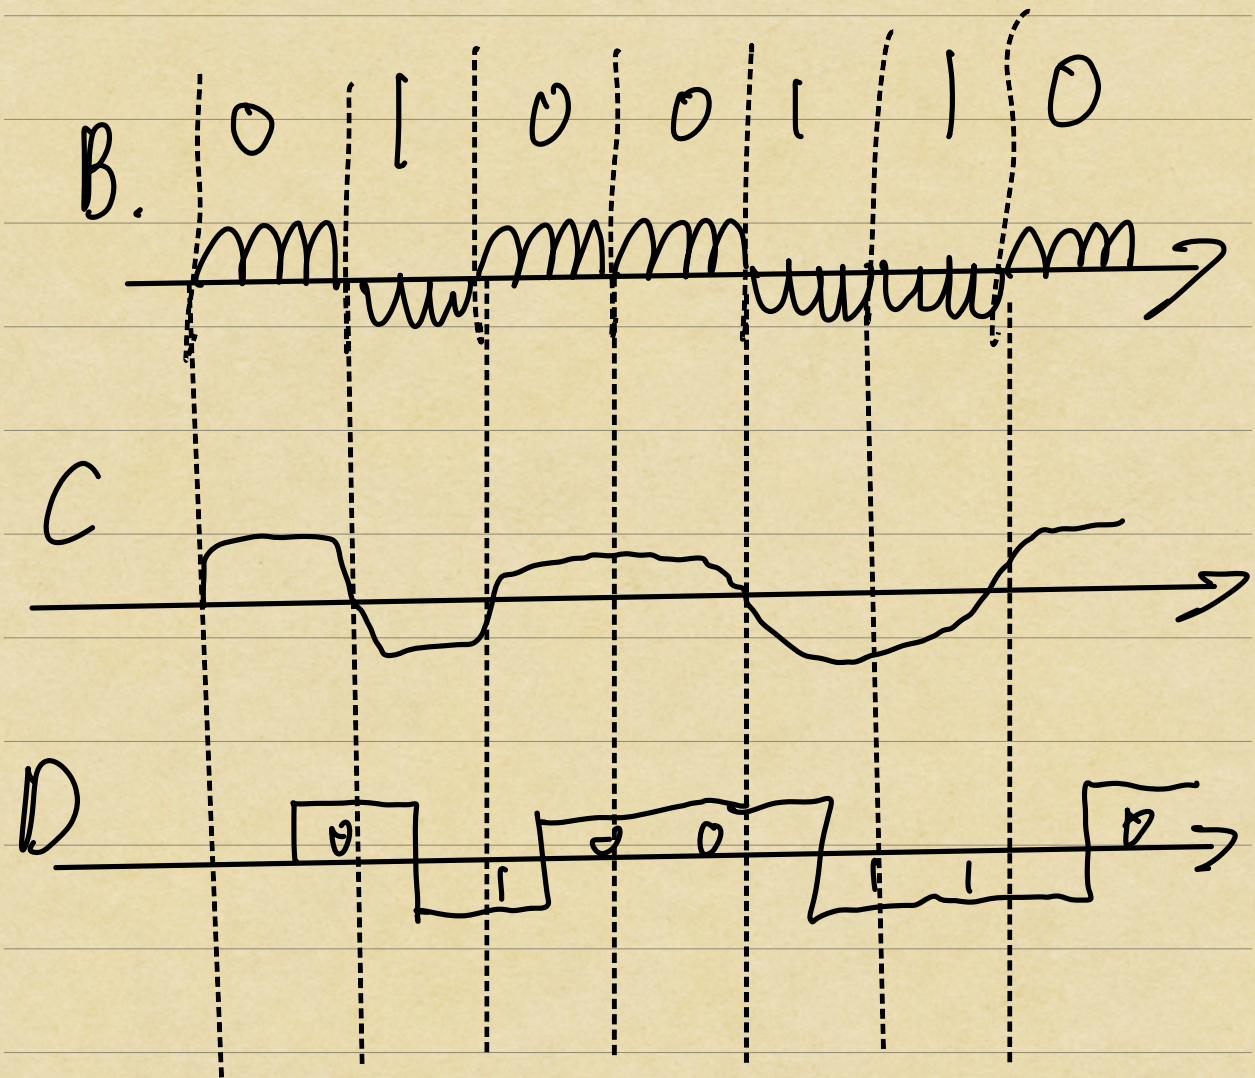 0 1 0 0 1 1 0
B.
C
D
0 1 0 0 1 1 0